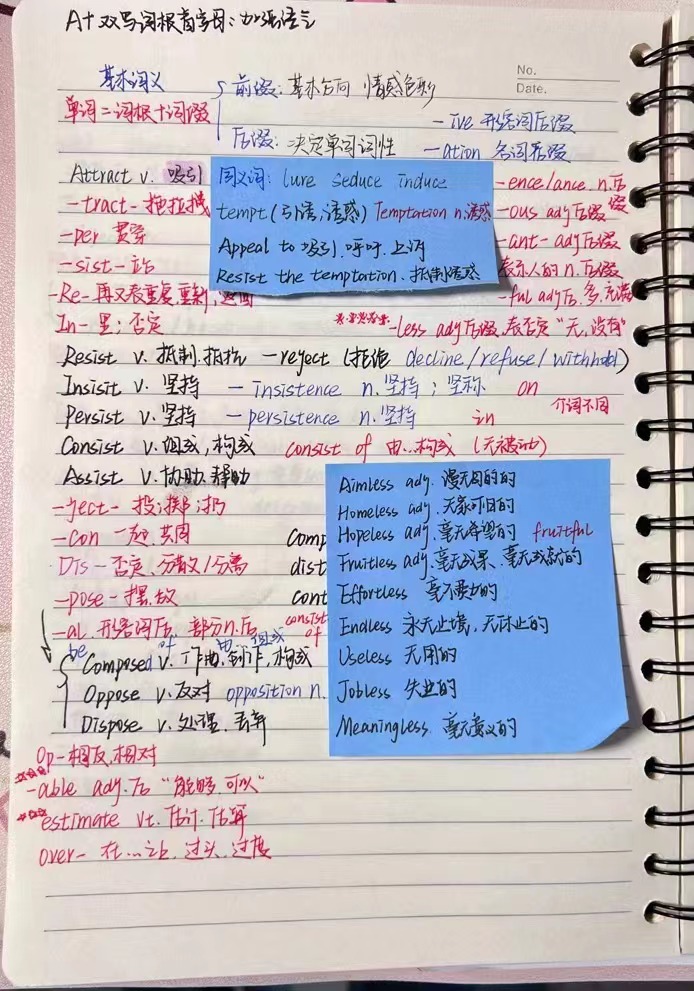 A+ 双写词根首字母：加强语气
No.
Date.
基本词义
前缀：基本方向 情感色彩
单词=词根+词缀
后缀：决定单词词性
-ive 形容词后缀
-ation 名词后缀
Attract v. 吸引
-tract- 拖拉拽
-per 贯穿
-sist- 站
-Re- 再又表重复、重新，返回
In- 里；否定
同义词: lure seduce induce
tempt (引诱,诱惑) Temptation n.诱惑
Appeal to 吸引.呼吁.上诉
Resist the temptation. 抵制诱惑
-ence/ance. n.后缀
-ous adj后缀
-ant- adj后缀
表示人的n.后缀
-ful adj后.多.充满
-less adj后缀.表否定"无,没有"
Resist v. 抵制.抵抗 -reject (拒绝 decline/refuse/withhold)
Insisit v. 坚持 - insistence n.坚持；坚称 on
介词不同
Persist v. 坚持 - persistence n.坚持 in
Consist v.组成,构成 consist of 由...构成 (无被动)
Assist v.协助.帮助
-ject- 投;掷;扔
-con 一起.共同
Dis- 否定、分散/分离
-pose- 摆.放
-al. 形容词后、部分n.后
comp
dist
cont
consist of
be of 由 组成
Composed v. 作曲.创作,构成
Oppose v.反对 opposition n.
Dispose v.处理.丢弃
Aimless adj. 漫无目的的
Homeless adj. 无家可归的
Hopeless adj.毫无希望的 fruitful
Fruitless adj.毫无成果、毫无成就的
Effortless 毫不费力的
Endless 永无止境,无休止的
Useless 无用的
Jobless 失业的
Meaningless 毫无意义的
Op- 相反,相对
-able adj.后 "能够.可以"
estimate vt.估计.估算
over- 在...之上.过头.过度